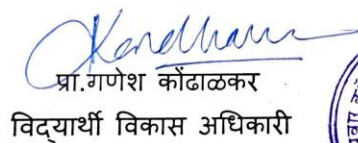 प्रा.गणेश कोंढाळकर
विद्यार्थी विकास अधिकारी